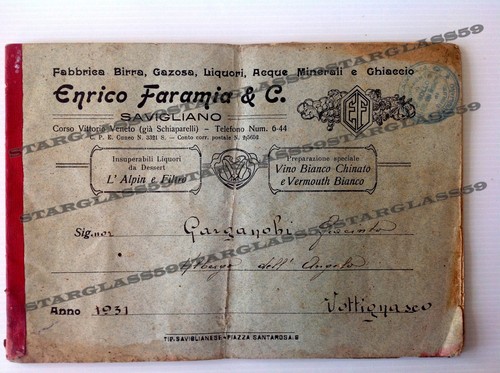 Fabbrica Birra, Gazosa, Liquori, Acque Minerali e Ghiaccio
Enrico Faramia & C.
SAVIGLIANO
EF
Corso Vittorio Veneto (già Schiaparelli) - Telefono Num. 6-44
C. P. E. Cuneo N. 3321 S. - Conto corr. postale N.
Insuperabili Liquori
da Dessert
L'Alpin e Filtro
Preparazione speciale
Vino Bianco Chinato
e Vermouth Bianco
Signor Giacinto
Albergo dell' Angelo
Anno 1931 Vottignasco
TIP. SAVIGLIANESE - PIAZZA SANTAROSA, 9
STARGLASS59